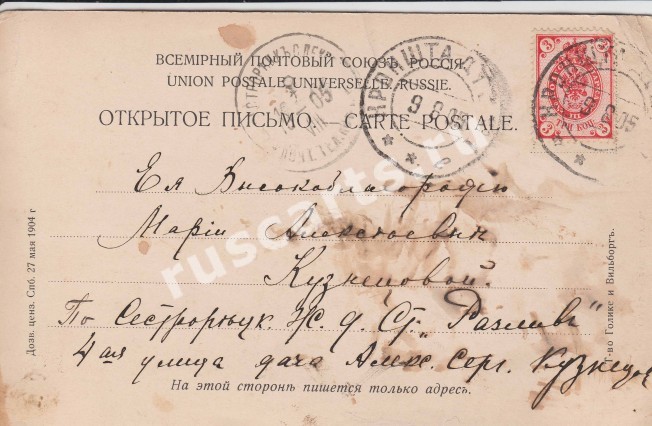 ВСЕМІРНЫЙ ПОЧТОВЫЙ СОЮЗЪ. РОССІЯ.
UNION POSTALE UNIVERSELLE. RUSSIE.
ОТКРЫТОЕ ПИСЬМО. — CARTE POSTALE.
Ея Высокоблагородію
Маріи Алексѣевнѣ
Кузнецовой.
По Сестрорѣцк. Ж. д. Ст. „Разливъ"
4ая улица дача Алекс. Серг. Кузнецов
На этой сторонѣ пишется только адресъ.
Дозв. ценз. Спб. 27 мая 1904 г
Т-во Голике и Вильборгъ.
КРОНШТАДТЪ
9 8 05
3 3
ruscarts.ru